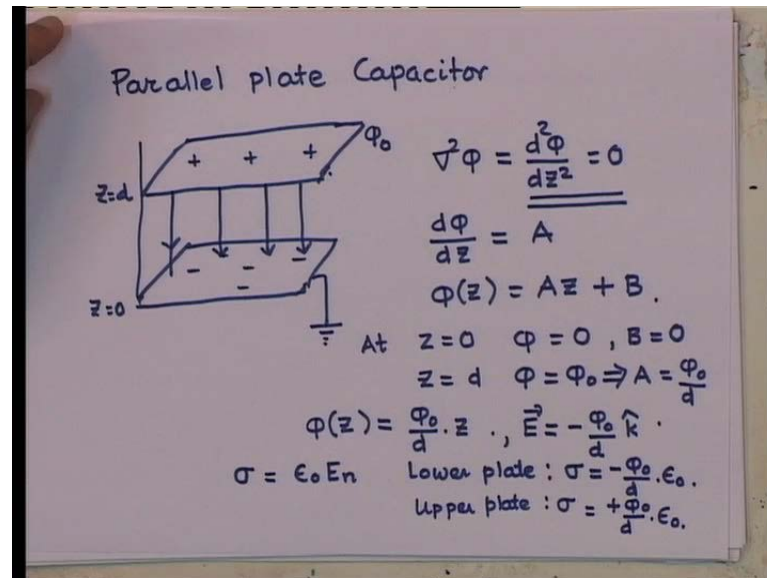 Parallel plate Capacitor
+ + + φ₀
z=d
- - - - -
z=0
∇²φ = d²φ/dz² = 0
dφ/dz = A
φ(z) = Az + B.
At z=0 φ=0 , B=0
z=d φ=φ₀ ⇒ A = φ₀/d
φ(z) = φ₀/d . z ., E⃗ = - φ₀/d k̂ .
σ = ϵ₀En Lower plate : σ = - φ₀/d . ϵ₀.
Upper plate : σ = + φ₀/d . ϵ₀.